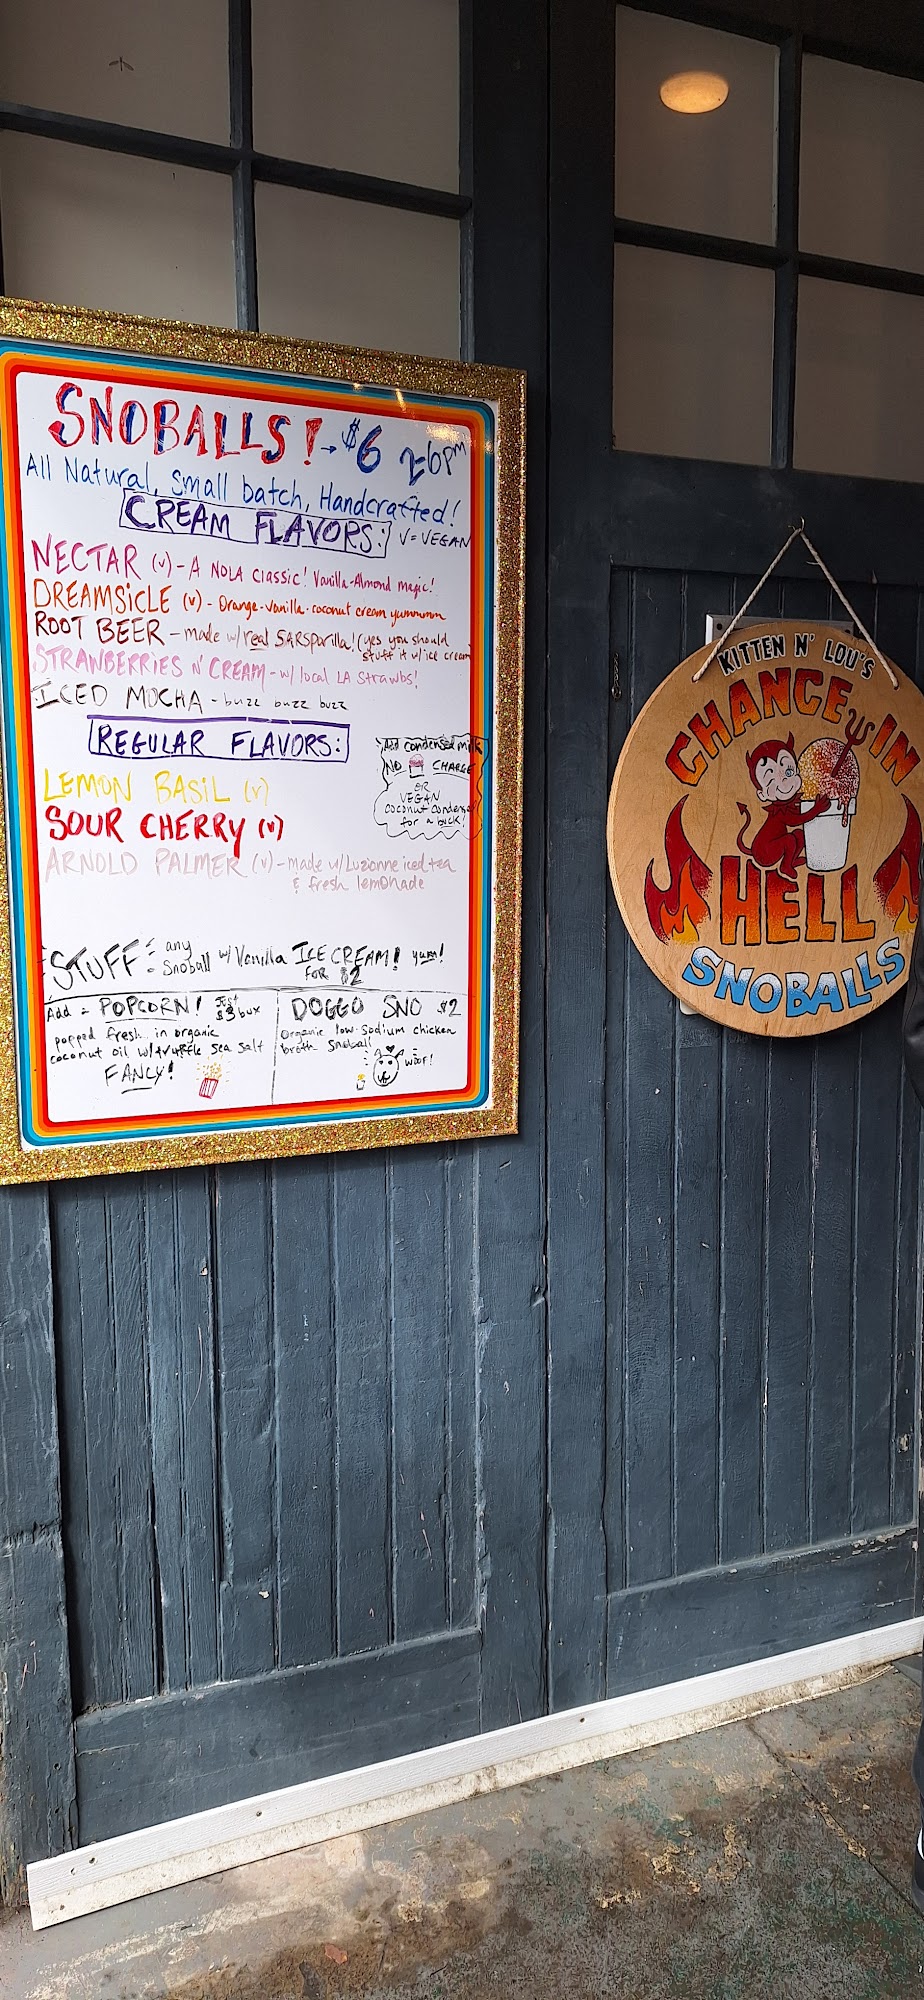 SNOBALLS! → $6 2-6PM
All Natural, Small batch, Handcrafted!
CREAM FLAVORS: V = VEGAN
NECTAR (v) - A NOLA Classic! Vanilla-Almond magic!
DREAMSICLE (v) - Orange-Vanilla-coconut cream yummmm
ROOT BEER - made w/ real SARSparilla! (yes you should
stuff it w/ ice cream
STRAWBERRIES N' CREAM - w/ local LA Strawbs!
ICED MOCHA - buzz buzz buzz
REGULAR FLAVORS:
Add condensed milk
NO CHARGE
OR
VEGAN
coconut condensed
for a buck!
LEMON BASIL (v)
SOUR CHERRY (v)
ARNOLD PALMER (v) - made w/ Luzianne iced tea
& fresh lemonade
STUFF any
Snoball w/ Vanilla ICE CREAM! yum!
FOR $2
Add = POPCORN! Just
$3 box
popped fresh in organic
coconut oil w/ truffle sea salt
FANCY!
DOGGO SNO $2
Organic low-sodium chicken
broth Snoball!
WOOF!
KITTEN N' LOU'S
CHANCE IN
HELL
SNOBALLS